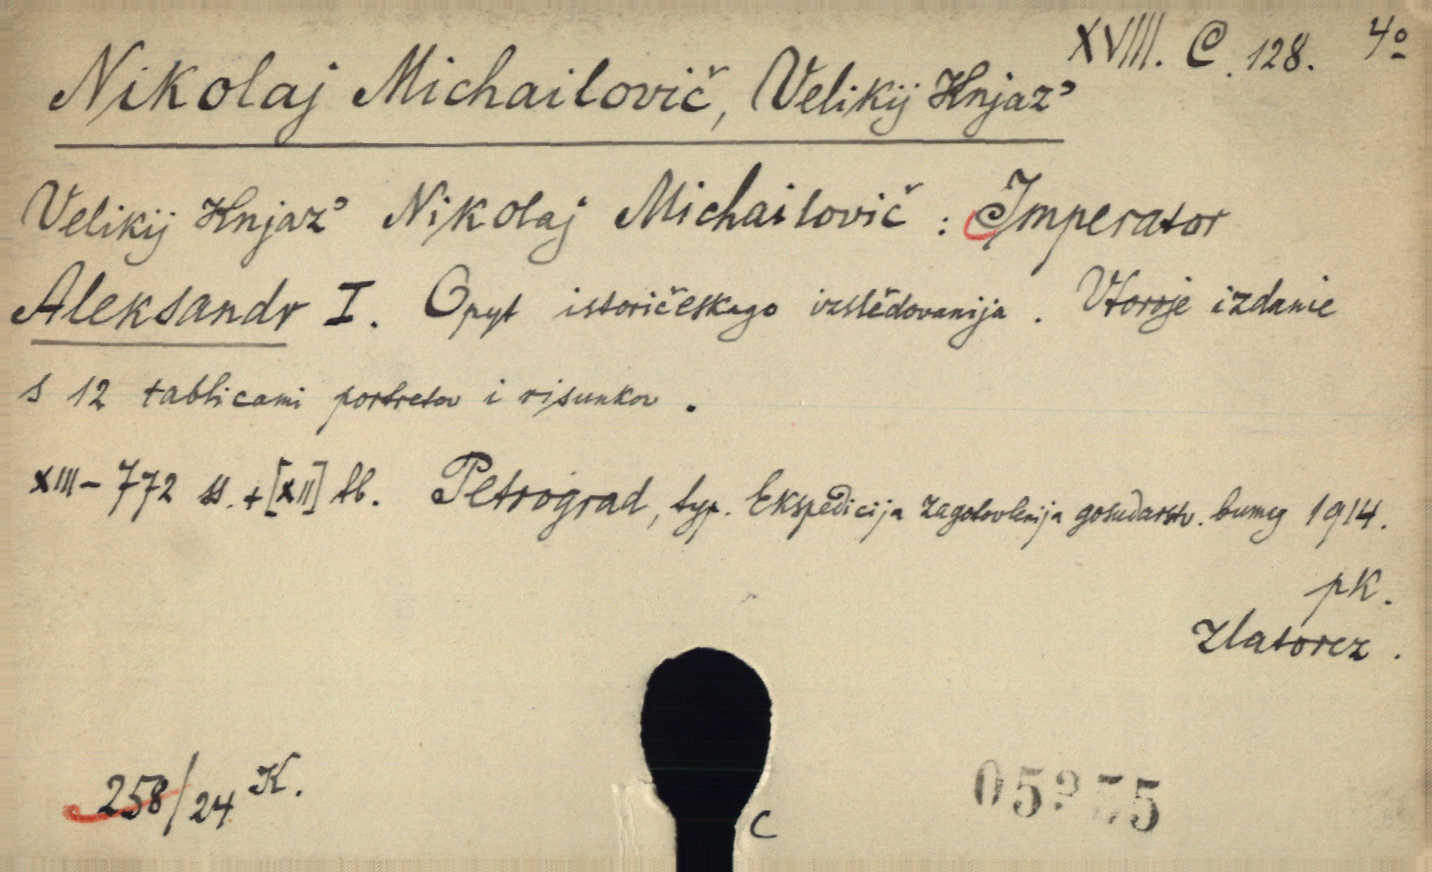 XVIII. C. 128. 4º
Nikolaj Michailovič, Velikij Knjaz'
Velikij Knjaz' Nikolaj Michailovič : Imperator
Aleksandr I. Opyt istoričeskago izslědovanija. Vtoroje izdanie
s 12 tablicami portretov i risunkov.
XIII-772 ss. + [XII] tb. Petrograd, typ. Ekspedicija zagotovlenija gosudarstv. bumag 1914.
pK.
Zlatorez.
258/24 K.
C